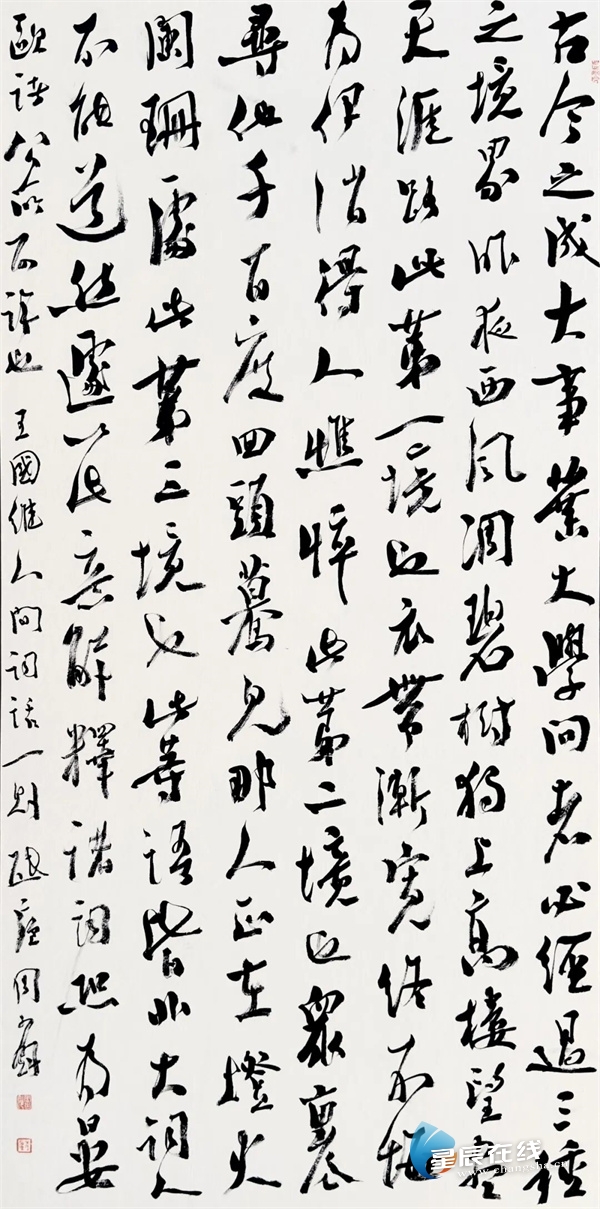 古今之成大事業大學問者必經過三種
之境界昨夜西風凋碧樹獨上高樓望盡
天涯路此第一境也衣帶漸寬終不悔
為伊消得人憔悴此第二境也眾裏
尋他千百度回頭驀見那人正在燈火
闌珊處此第三境也此等語皆非大詞人
不能道然遽以此意解釋諸詞恐為晏
歐諸公所不許也 王國維人間詞話一則 周
星辰在线
www.changsha.cn